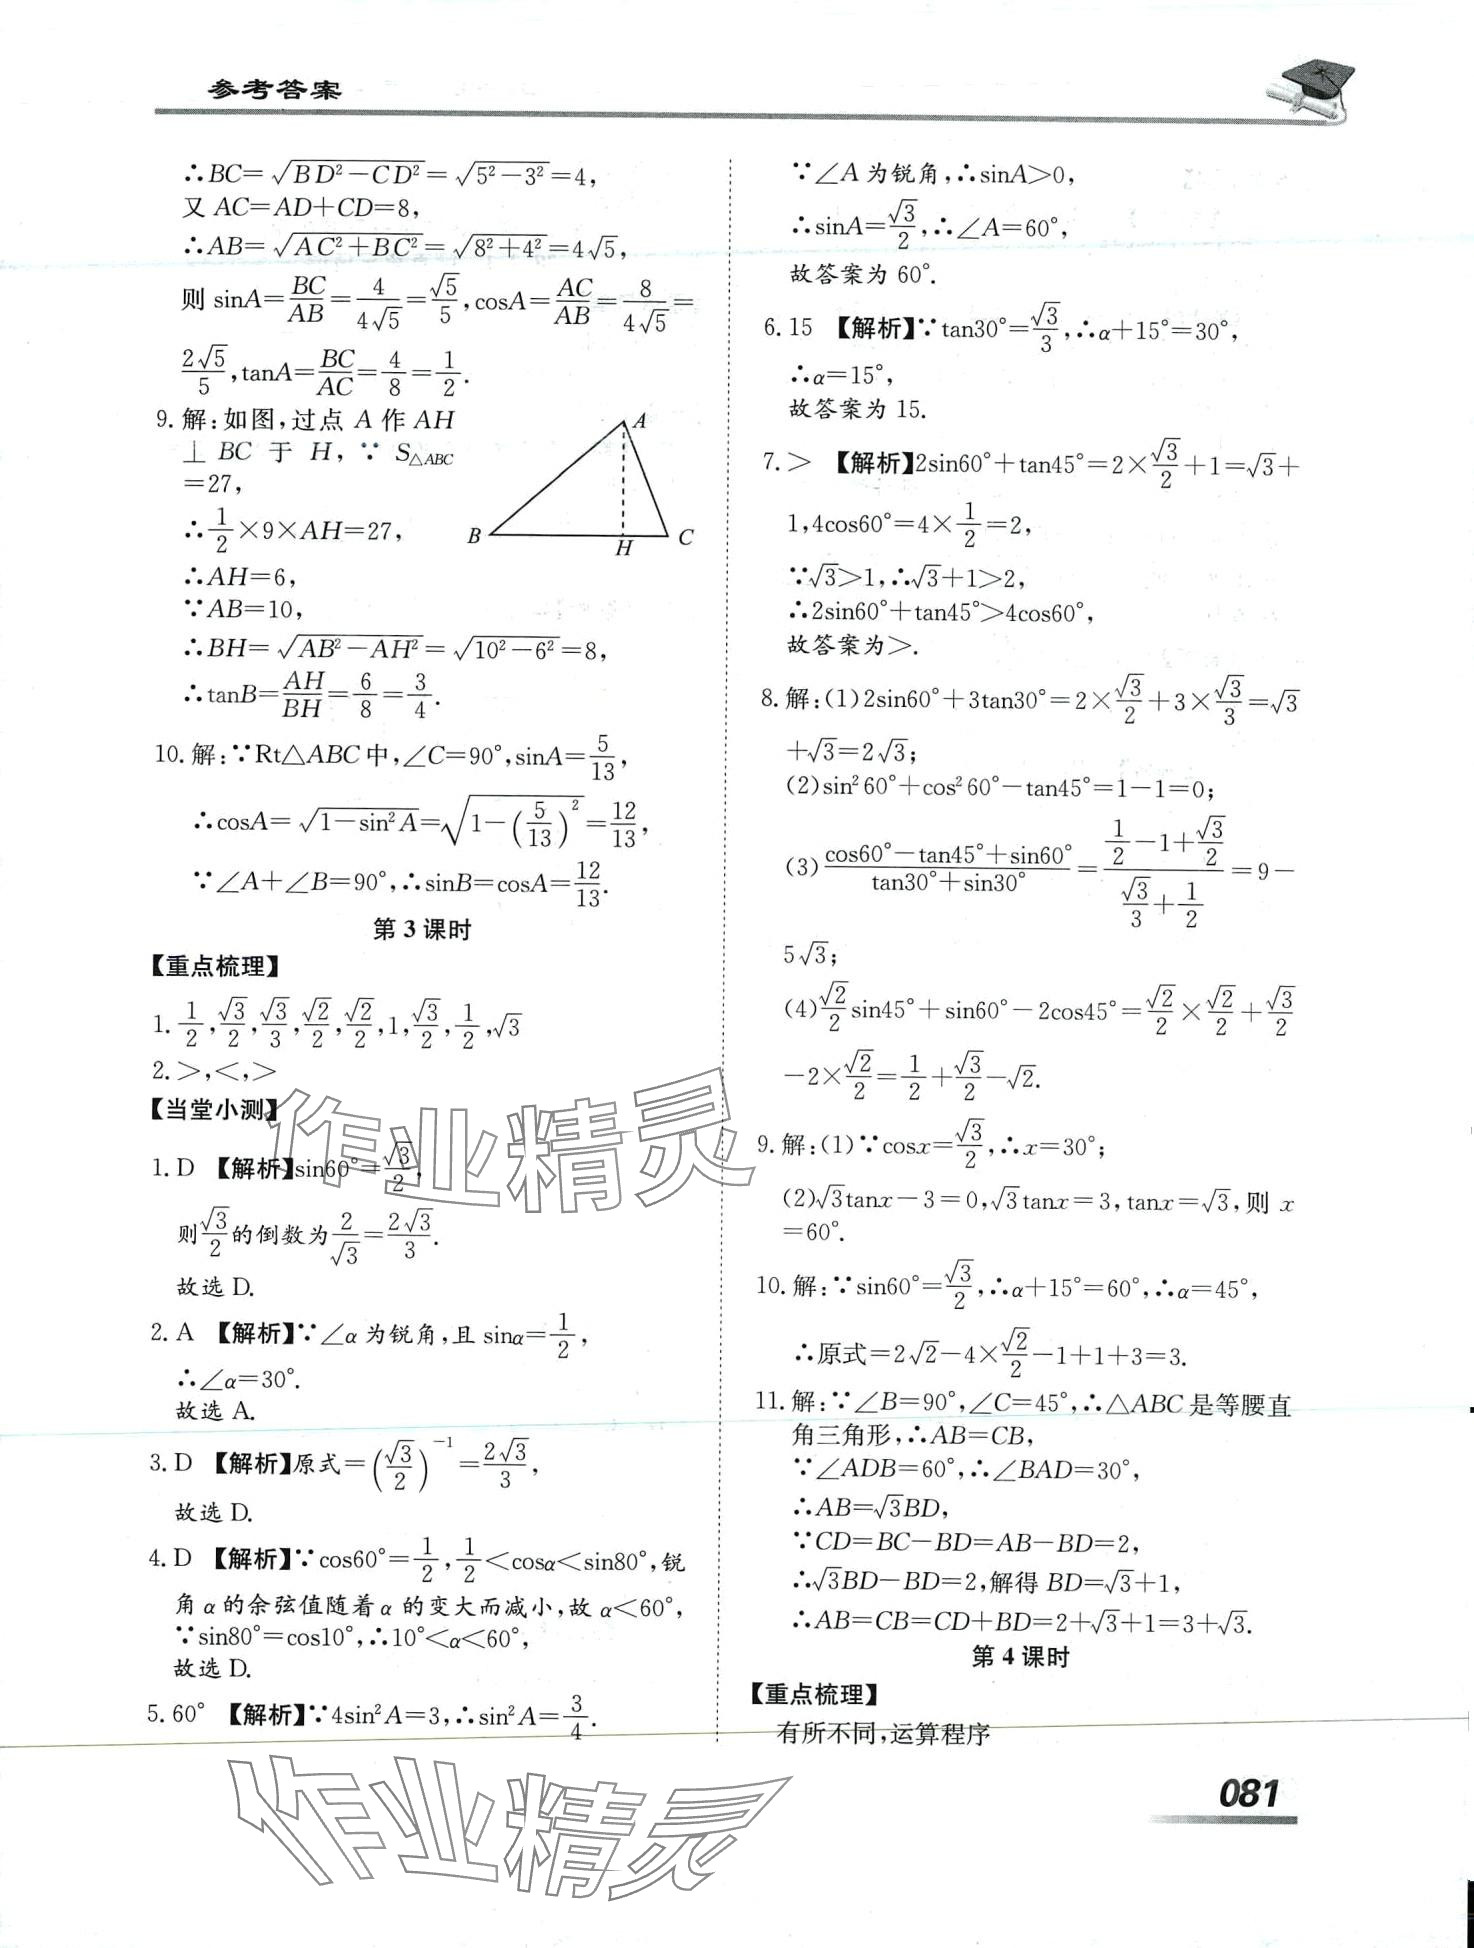 参考答案
∴BC=√(BD²-CD²)=√(5²-3²)=4,
又 AC=AD+CD=8,
∴AB=√(AC²+BC²)=√(8²+4²)=4√5,
则 sinA=BC/AB=4/(4√5)=√5/5,cosA=AC/AB=8/(4√5)=
2√5/5,tanA=BC/AC=4/8=1/2.
9.解:如图,过点 A 作 AH
⊥ BC 于 H, ∵ S△ABC
=27,
∴1/2×9×AH=27,
∴AH=6,
∵AB=10,
∴BH=√(AB²-AH²)=√(10²-6²)=8,
∴tanB=AH/BH=6/8=3/4.
A
B
H
C
10.解:∵Rt△ABC中,∠C=90°,sinA=5/13,
∴cosA=√(1-sin²A)=√(1-(5/13)²)=12/13,
∵∠A+∠B=90°,∴sinB=cosA=12/13.
第 3 课时
【重点梳理】
1.1/2,√3/2,√3/3,√2/2,√2/2,1,√3/2,1/2,√3
2.>,<,>
【当堂小测】
1.D 【解析】sin60°=√3/2,
则√3/2的倒数为2/√3=2√3/3.
故选 D.
2.A 【解析】∵∠α为锐角,且 sinα=1/2,
∴∠α=30°.
故选 A.
3.D 【解析】原式=(√3/2)⁻¹=2√3/3,
故选 D.
4.D 【解析】∵cos60°=1/2,1/2<cosα<sin80°,锐
角 α 的余弦值随着 α 的变大而减小,故 α<60°,
∵sin80°=cos10°,∴10°<α<60°,
故选 D.
5.60° 【解析】∵4sin²A=3,∴sin²A=3/4.
∵∠A 为锐角,∴sinA>0,
∴sinA=√3/2,∴∠A=60°,
故答案为 60°.
6.15 【解析】∵tan30°=√3/3,∴α+15°=30°,
∴α=15°,
故答案为 15.
7.> 【解析】2sin60°+tan45°=2×√3/2+1=√3+
1,4cos60°=4×1/2=2,
∵√3>1,∴√3+1>2,
∴2sin60°+tan45°>4cos60°,
故答案为>.
8.解:(1)2sin60°+3tan30°=2×√3/2+3×√3/3=√3
+√3=2√3;
(2)sin²60°+cos²60°-tan45°=1-1=0;
(3)(cos60°-tan45°+sin60°)/(tan30°+sin30°)=(1/2-1+√3/2)/(√3/3+1/2)=9-
5√3;
(4)√2/2sin45°+sin60°-2cos45°=√2/2×√2/2+√3/2
-2×√2/2=1/2+√3/2-√2.
9.解:(1)∵cosx=√3/2,∴x=30°;
(2)√3tanx-3=0,√3tanx=3,tanx=√3,则 x
=60°.
10.解:∵sin60°=√3/2,∴α+15°=60°,∴α=45°,
∴原式=2√2-4×√2/2-1+1+3=3.
11.解:∵∠B=90°,∠C=45°,∴△ABC是等腰直
角三角形,∴AB=CB,
∵∠ADB=60°,∴∠BAD=30°,
∴AB=√3BD,
∵CD=BC-BD=AB-BD=2,
∴√3BD-BD=2,解得 BD=√3+1,
∴AB=CB=CD+BD=2+√3+1=3+√3.
第 4 课时
【重点梳理】
有所不同,运算程序
081
作业精灵
作业精灵